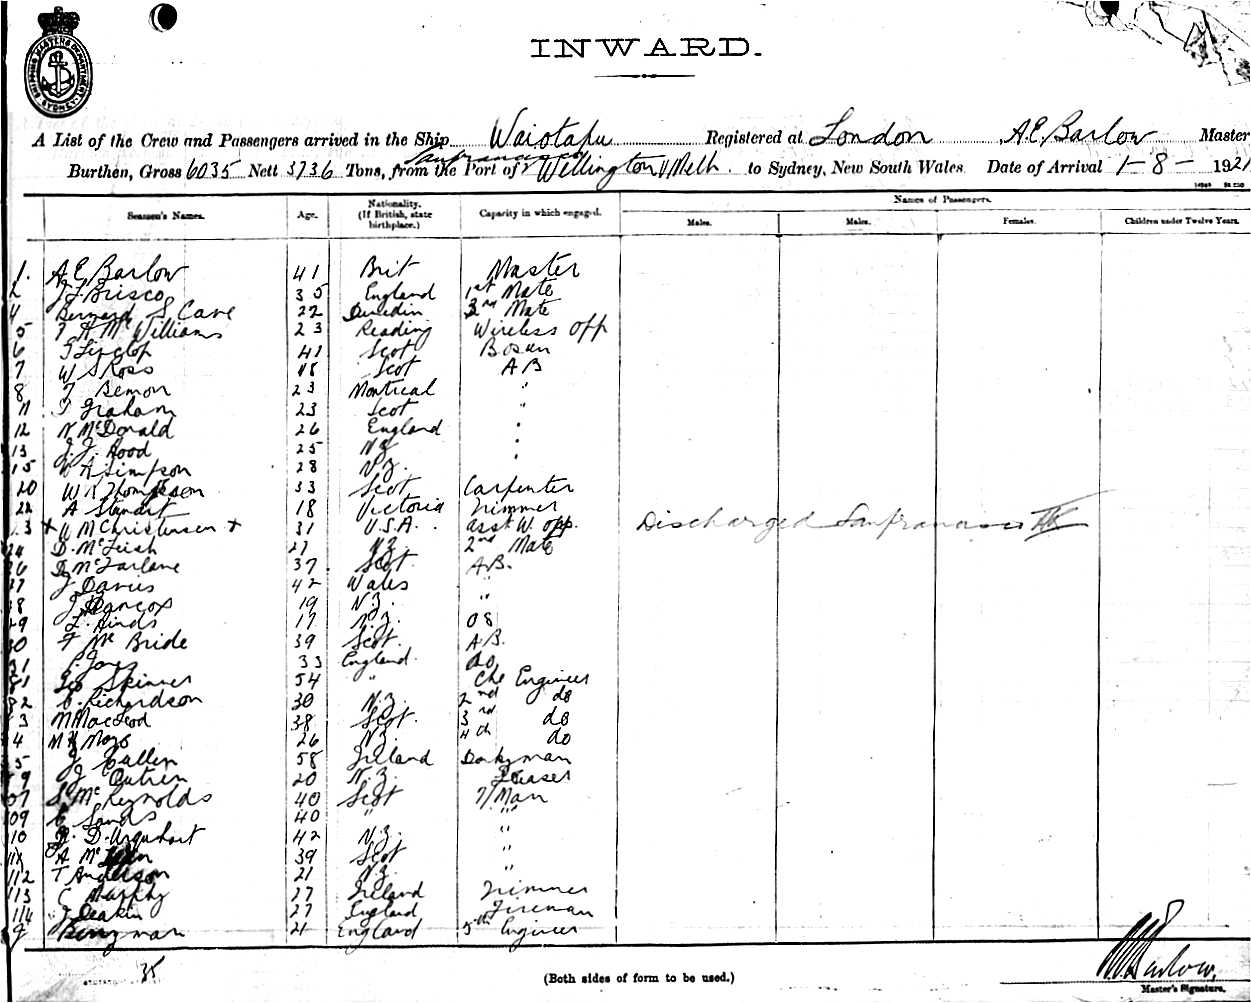 SHIPPING MASTERS DEPARTMENT SYDNEY
INWARD.
A List of the Crew and Passengers arrived in the Ship Waiotapu Registered at London A.E. Barlow Master
Burthen, Gross 6035 Nett 3736 Tons, from the Port of Sanfrancisco Wellington V/Melb. to Sydney, New South Wales. Date of Arrival 1-8-1921
Seamen's Names. Age. Nationality. (If British, state birthplace.) Capacity in which engaged. Names of Passengers.
Males. Males. Females. Children under Twelve Years.
1. A E Barlow 41 Brit Master
2 J F Brisco 35 England 1st Mate
4 Bernard S Cave 22 Dunedin 3rd Mate
5 McWilliams 23 Reading Wireless Opp
6 41 Scot Bosun
7 W S Ross 48 Scot AB
8 Bemon 23 Montreal "
11 T Graham 23 Scot "
12 N McDonald 26 England "
13 J. J. Hood 25 NZ "
15 W A Simpson 28 N.Z.
20 W R Thompson 33 Scot Carpenter
22 A 18 Victoria Trimmer
3 + W M Christensen + 31 U.S.A. asst W. opp. Discharged Sanfrancisco
24 D. McLeish 27 NZ. 2nd Mate
26 D McFarlane 37 Scot A.B.
27 J Davies 42 Wales "
28 J Hancox 19 N.Z. "
29 L. Hinds 17 N.Z. OS
30 F Mc Bride 39 Scot A.B.
31 Jones 33 England do
81 Geo Skinner 54 " Che Engineer
82 C. Richardson 30 N.Z. 2nd do
3 N MacLeod 38 Scot 3rd do
4 26 NZ 4th do
5 J Cullen 58 Ireland Donkyman
J 20 N.Z. Greaser
07 S McReynolds 40 Scot F/Man
09 C Sands 40 " "
10 D. Urquhart 42 N.Z. "
11 A Mc 39 Scot "
112 T Anderson 21 NZ. "
113 C Murphy 27 Ireland Trimmer
114 J Deakin 27 England Fireman
9 Berryman 21 England 5th Engineer
35
(Both sides of form to be used.)
Barlow.
Master's Signature.